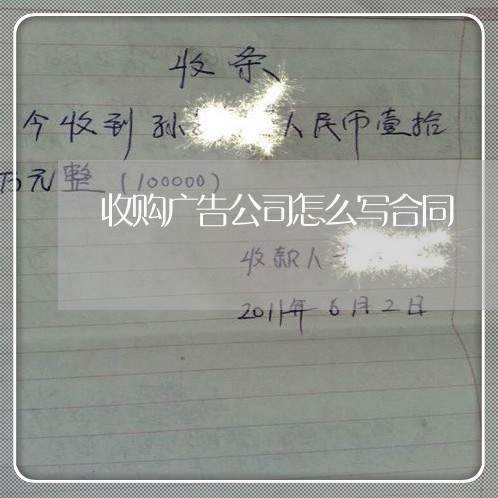 收条
今收到 孙 人民币壹拾
万元整（100000）
收购广告公司怎么写合同
收款人
2011年6月2日